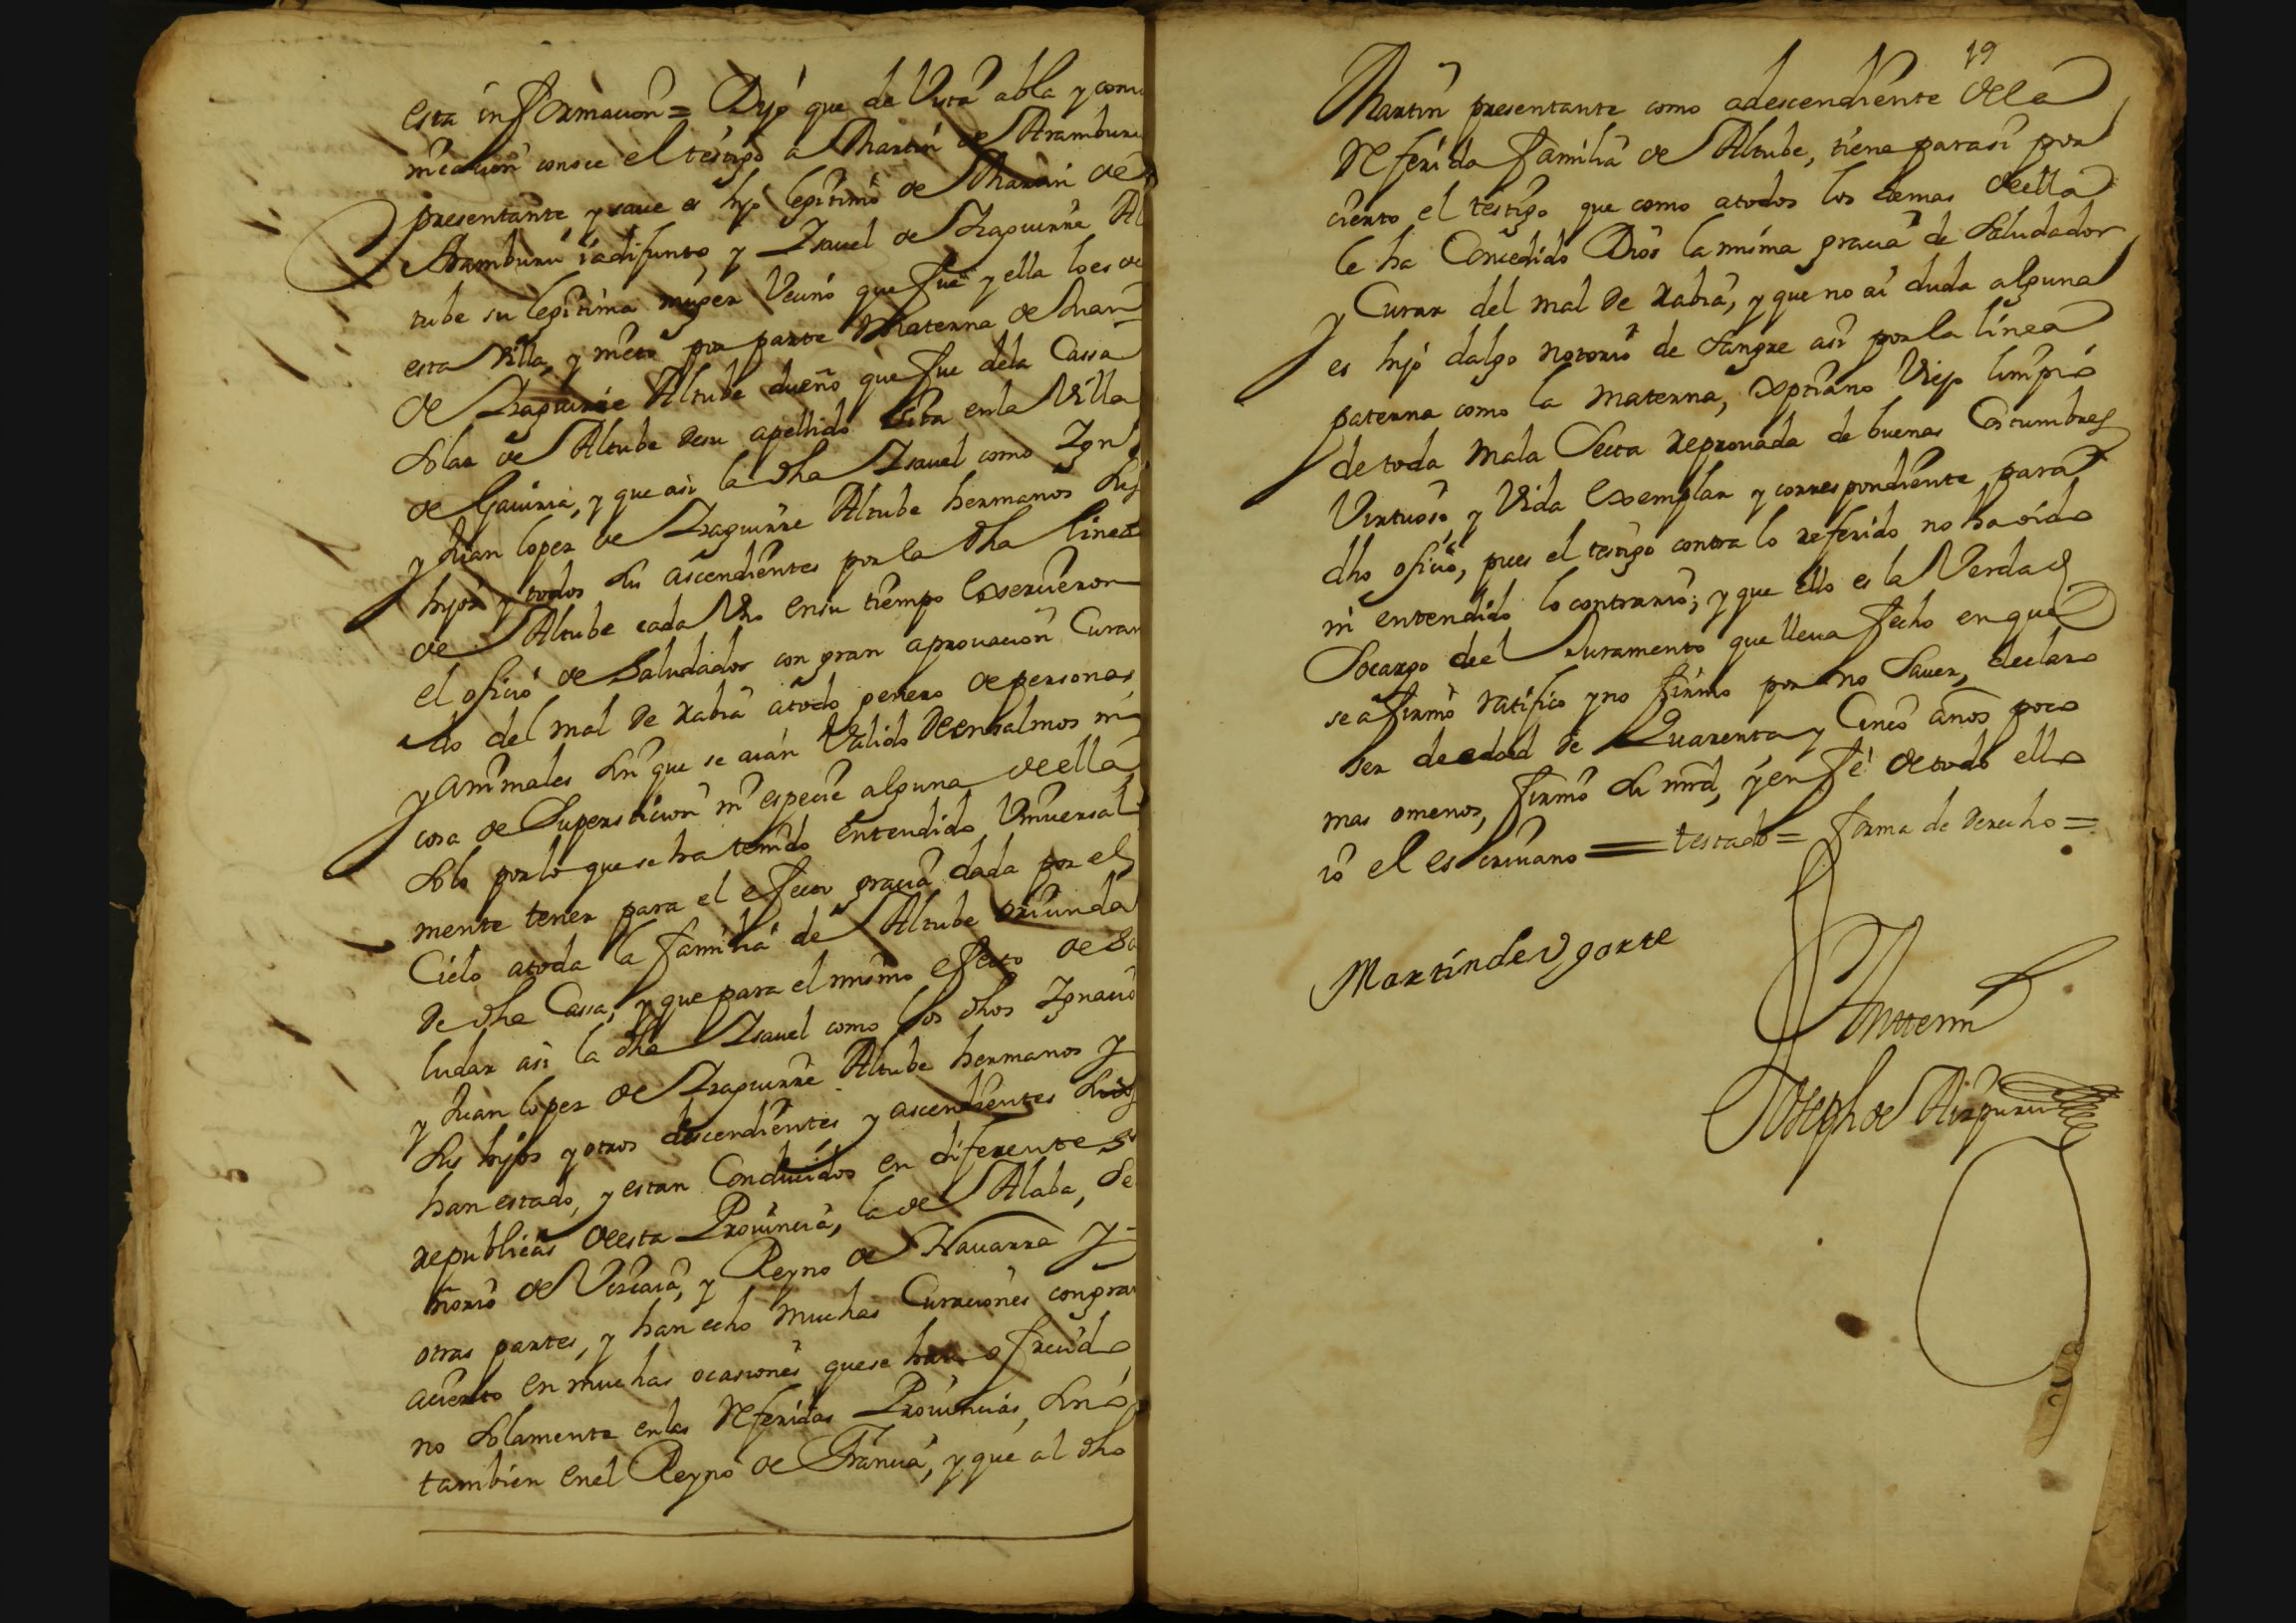 esta informacion = Dijo que de Vista abla y comu
nicacion conoce el testigo a Martin de Aramburu
presentante, y saue es hijo legitimo de Martin de
Aramburu ia difunto, y Isauel de Izaguirre Al
tube su legitima muger Vecino que fue y ella lo es de
esta Villa, y nieto por parte Materna de Juan
de Izaguirre Altube dueño que fue dela Cassa
Solar de Altube de su apellido sita en la Villa
de Gauiria, y que asi la dha Isauel como Ign
y Juan lopez de Izaguirre Altube hermanos sus
hijos y todos sus ascendientes por la dha linea
de Altube cada Vno en su tiempo exercieron
el oficio de Saludador con gran aprouacion Curan
do del mal de rabia a todo genero de personas,
y animales sin que se aian Valido de ensalmos ni
cosa de Supersticion ni especie alguna de ella
solo por lo que se ha tenido entendido Vniversal
mente tener para el efecto gracia dada por el
Cielo a toda la familia de Altube oriunda
de dha Cassa, y que para el mismo efecto de Sa
ludar asi la dha Isauel como los dhos Ignacio
y Juan lopez de Izaguirre Altube hermanos y
sus hijos y otros descendientes y ascendientes
han estado, y estan Conducidos en diferentes
republicas de esta Prouincia, la de Alaba, Se
ñorio de Vizcaia, y Reyno de Nauarra y
otras partes, y han echo muchas Curaciones con gran
acierto en muchas ocasiones que se han ofrecido
no solamente en las Referidas Prouincias, sino
tambien en el Reyno de Francia, y que al dho
19
Martin presentante como a descendiente de la
Referida familia de Altube, tiene para si por
cierto el testigo que como a todos los demas de ella
le ha Concedido Dios la misma gracia de Saludador
y Curar del mal de rabia, y que no ai duda alguna
es hijo dalgo notorio de sangre asi por la linea
paterna como la Materna, xptiano Viejo limpio
de toda mala Secta reprouada de buenas Costumbres
Virtuoso y Vida Exemplar y correspondiente para
dho oficio, pues el testigo contra lo referido no ha oido
ni entendido lo contrario; y que ello es la Verdad
Socargo del Juramento que lleua fecho en que
se afirmo ratifico y no firmo por no Sauer, declaro
ser de edad de Quarenta y Cinco años poco
mas o menos, firmo su mrd, y en fe de todo ello
io el escriuano = testado = forma de derecho =
Martin de Vgarte
Antemi
Joseph de Aizpuru